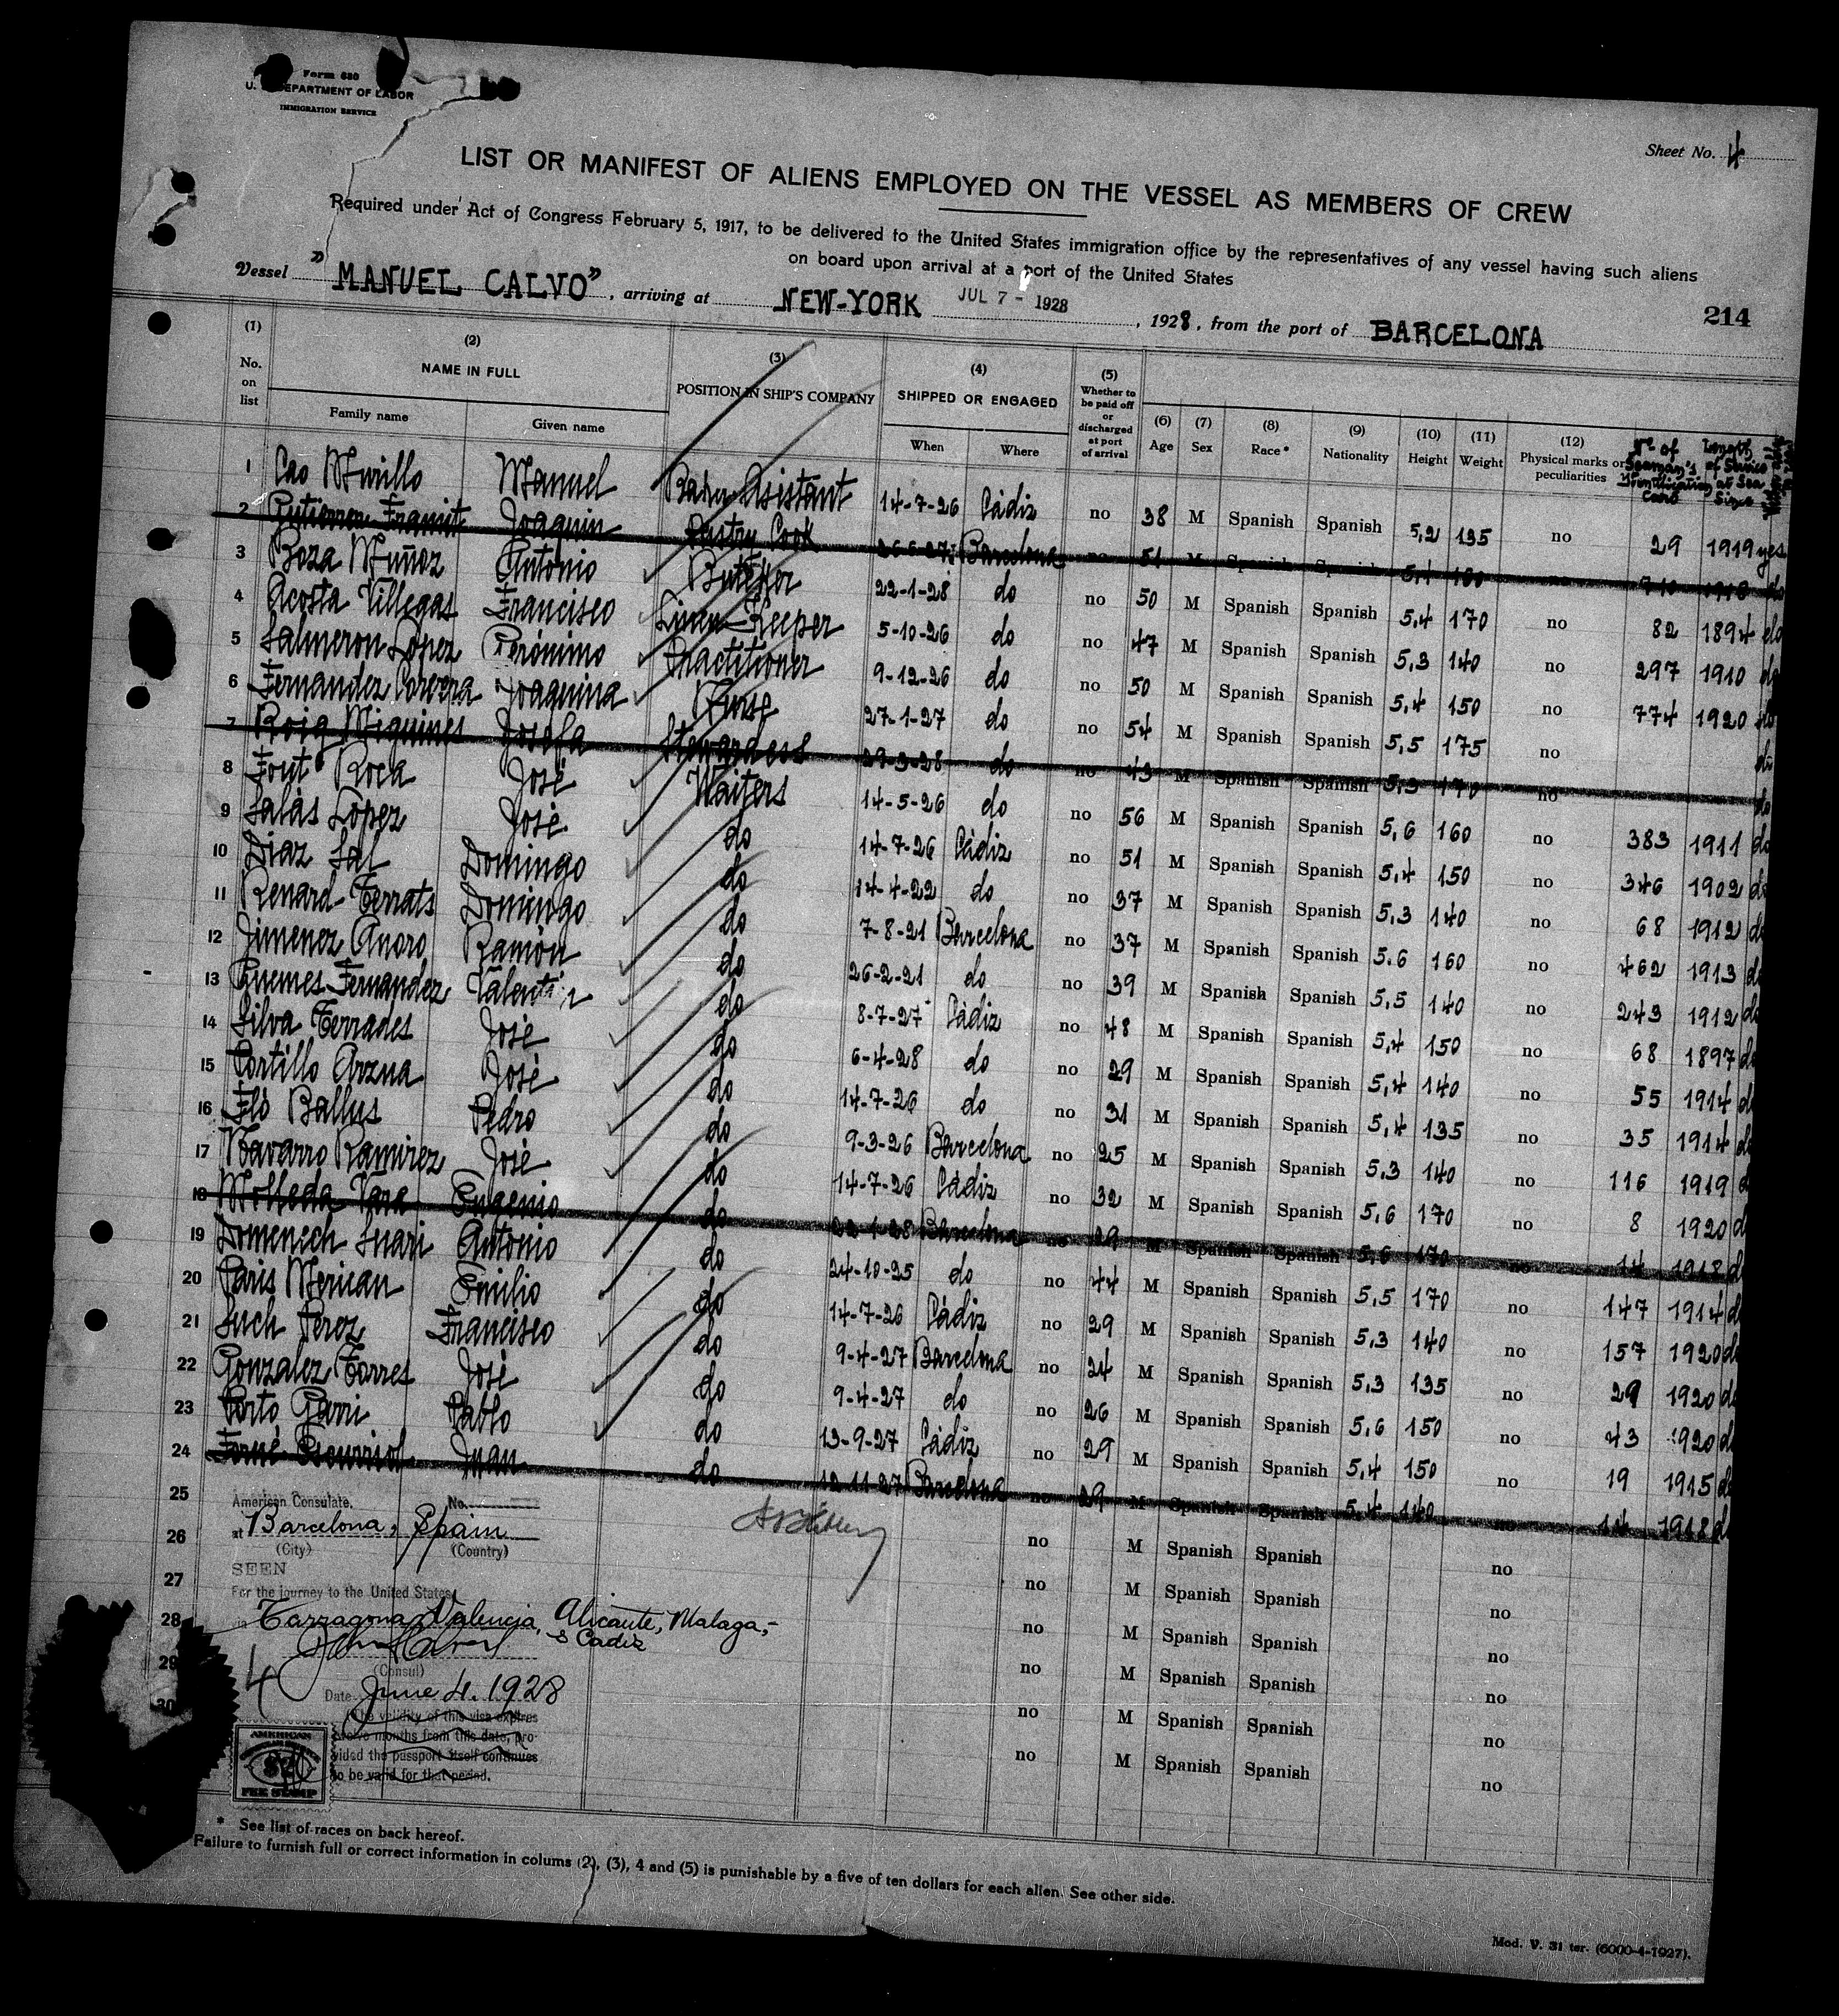 Form 680
U. S. DEPARTMENT OF LABOR
IMMIGRATION SERVICE
Sheet No. 4
LIST OR MANIFEST OF ALIENS EMPLOYED ON THE VESSEL AS MEMBERS OF CREW
Required under Act of Congress February 5, 1917, to be delivered to the United States immigration office by the representatives of any vessel having such aliens
on board upon arrival at a port of the United States
Vessel "MANUEL CALVO", arriving at NEW-YORK JUL 7 - 1928, 1928, from the port of BARCELONA
214
(1) No. on list
(2) NAME IN FULL Family name Given name
(3) POSITION IN SHIP'S COMPANY
(4) SHIPPED OR ENGAGED When Where
(5) Whether to be paid off or discharged at port of arrival
(6) Age (7) Sex (8) Race* (9) Nationality (10) Height (11) Weight (12) Physical marks or peculiarities Nº of Seaman's Identification Card Length of Service at Sea Since
1 Cao Murillo Manuel Baker Asistant 14-7-26 Cádiz no 38 M Spanish Spanish 5,2 135 no 29 1919 yes
2 Gutierrez Joaquin Pastry Cook Barcelona no 51 M Spanish Spanish no do
3 Boza Muñoz Antonio Butcher 22-1-28 do no 50 M Spanish Spanish 5,4 170 no 82 1894 do
4 Acosta Villegas Francisco Linen Keeper 5-10-26 do no 47 M Spanish Spanish 5,3 140 no 297 1910 do
5 Salmeron Lopez Gerónimo Practitioner 9-12-26 do no 50 M Spanish Spanish 5,4 150 no 774 1920 do
6 Fernandez Corvera Joaquina Nurse 27-1-27 do no 54 M Spanish Spanish 5,5 175 no do
7 Roig Miquines Josefa Stewardess 29-3-28 do no 43 M Spanish Spanish 5,3 170 no do
8 Font Roca José Waiters 14-5-26 do no 56 M Spanish Spanish 5,6 160 no 383 1911 do
9 Salas Lopez José do 14-7-26 Cádiz no 51 M Spanish Spanish 5,4 150 no 346 1902 do
10 Diaz Sal Domingo do 14-4-22 do no 37 M Spanish Spanish 5,3 140 no 68 1912 do
11 Renard Ferrats Domingo do 7-8-21 Barcelona no 37 M Spanish Spanish 5.6 160 no 462 1913 do
12 Jimenez Anoro Ramón do 26-2-21 do no 39 M Spanish Spanish 5,5 140 no 243 1912 do
13 Guemes Fernandez Valentin do 8-7-27 Cádiz no 48 M Spanish Spanish 5,4 150 no 68 1897 do
14 Silva Terrades José do 6-4-28 do no 29 M Spanish Spanish 5,4 140 no 55 1914 do
15 Portillo Arzua José do 14-7-26 do no 31 M Spanish Spanish 5,4 135 no 35 1914 do
16 Fló Ballus Pedro do 9-3-26 Barcelona no 25 M Spanish Spanish 5.3 140 no 116 1919 d
17 Navarro Ramirez José do 14-7-26 Cádiz no 32 M Spanish Spanish 5,6 170 no 8 1920 d
18 Molleda Vara Eugenio do 22-1-28 Barcelona no 29 M Spanish Spanish 5,6 170 no 14 1918 d
19 Domenech Suari Antonio do 24-10-25 do no 44 M Spanish Spanish 5,5 170 no 147 1914 d
20 Paris Merican Emilio do 14-7-26 Cádiz no 29 M Spanish Spanish 5,3 140 no 157 1920 d
21 Such Perez Francisco do 9-4-27 Barcelona no 24 M Spanish Spanish 5,3 135 no 29 1920 d
22 Gonzalez Torres José do 9-4-27 do no 26 M Spanish Spanish 5,6 150 no 43 1920 d
23 Porto Garri Pablo do 13-9-27 Cádiz no 29 M Spanish Spanish 5,4 150 no 19 1915 d
24 Juan do 12-11-27 Barcelona no 29 M Spanish Spanish 5,4 140 no 14 1918 d
25 no M Spanish Spanish no
26 no M Spanish Spanish no
27 no M Spanish Spanish no
28 no M Spanish Spanish no
29 no M Spanish Spanish no
30 no M Spanish Spanish no
American Consulate, No.
at Barcelona, Spain
(City) (Country)
SEEN
For the journey to the United States
via Tarragona, Valencia, Alicante, Malaga,-
& Cadiz
(Consul)
4
Date June 4. 1928
(The validity of this visa expires
twelve months from this date, pro-
vided the passport itself continues
to be valid for that period.
AMERICAN
$2
FEE STAMP
* See list of races on back hereof.
Failure to furnish full or correct information in colums (2), (3), 4 and (5) is punishable by a five of ten dollars for each alien. See other side.
Mod. V. 31 ter. (6000-4-1927).